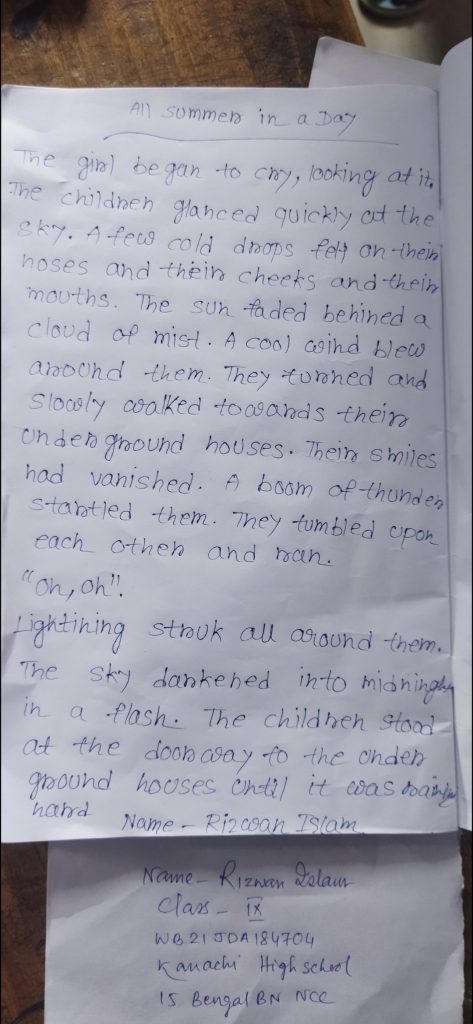 All summer in a Day
The girl began to cry, looking at it.
The children glanced quickly at the
sky. A few cold drops felt on their
noses and their cheeks and their
mouths. The sun faded behined a
cloud of mist. A cool wind blew
around them. They turned and
slowly walked towards their
underground houses. Their smiles
had vanished. A boom of thunder
startled them. They tumbled upon
each other and ran.
"Oh, oh".
Lightining struk all around them.
The sky darkened into midningh
in a flash. The children stood
at the doorway to the under
ground houses until it was
hard
Name - Rizwan Islam
Name - Rizwan Islam
Class - IX
WB21JDA184704
Kanachi High school
15 Bengal BN NCC